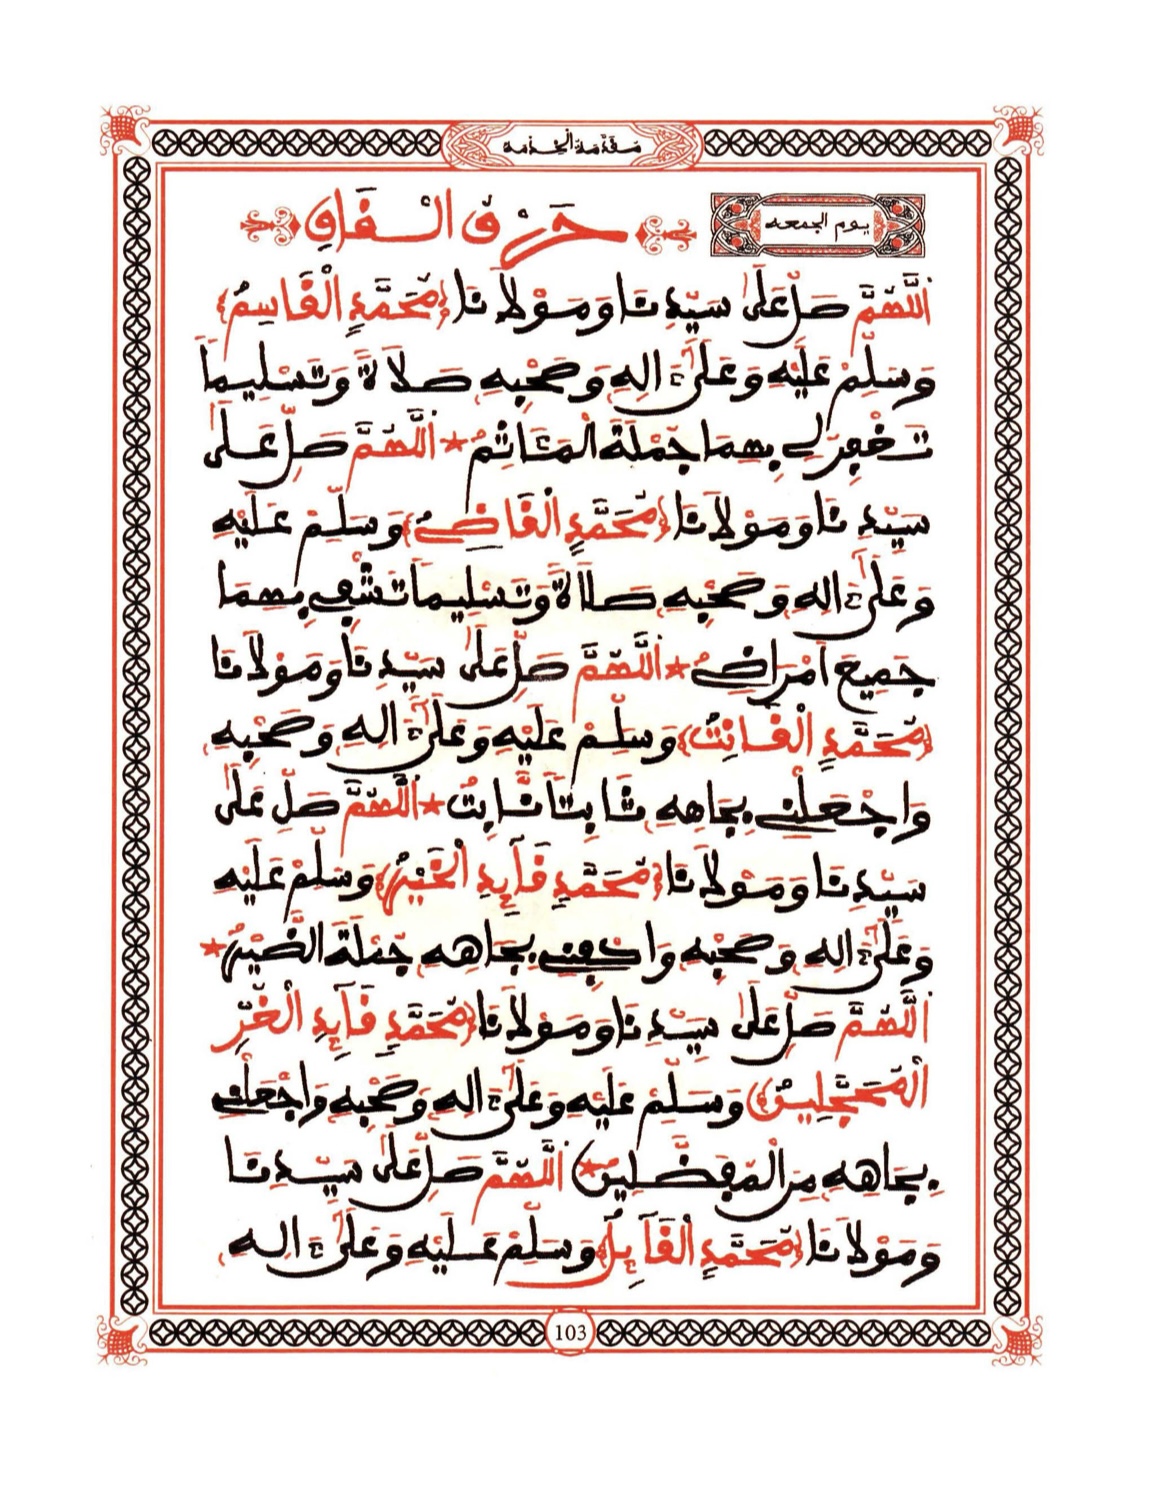 مقدمة الخدمة
يوم الجمعه
حرف القاف
اَللَّهُمَّ صَلِّ عَلَى سَيِّدِنَا وَمَوْلَانَا {مُحَمَّدٍ الْقَاسِمُ}
وَسَلِّمْ عَلَيْهِ وَعَلَى ءَالِهِ وَصَحْبِهِ صَلَاةً وَتَسْلِيمًا
تَغْفِرُ لِي بِهِمَا جُمْلَةَ الْمَئَاثِمُ * اَللَّهُمَّ صَلِّ عَلَى
سَيِّدِنَا وَمَوْلَانَا {مُحَمَّدٍ الْقَاضِي} وَسَلِّمْ عَلَيْهِ
وَعَلَى ءَالِهِ وَصَحْبِهِ صَلَاةً وَتَسْلِيمًا تَشْفِي بِهِمَا
جَمِيعَ أَمْرَاضِي * اَللَّهُمَّ صَلِّ عَلَى سَيِّدِنَا وَمَوْلَانَا
{مُحَمَّدٍ الْقَانِتُ} وَسَلِّمْ عَلَيْهِ وَعَلَى ءَالِهِ وَصَحْبِهِ
وَاجْعَلْنِي بِجَاهِهِ ثَابِتًا ثَابِتُ * اَللَّهُمَّ صَلِّ عَلَى
سَيِّدِنَا وَمَوْلَانَا {مُحَمَّدٍ قَآئِدِ الْخَيْرُ} وَسَلِّمْ عَلَيْهِ
وَعَلَى ءَالِهِ وَصَحْبِهِ وَاكْفِنِي بِجَاهِهِ جُمْلَةَ الضَّيْرُ *
اَللَّهُمَّ صَلِّ عَلَى سَيِّدِنَا وَمَوْلَانَا {مُحَمَّدٍ قَآئِدِ الْغُرِّ
الْمُحَجَّلِينُ} وَسَلِّمْ عَلَيْهِ وَعَلَى ءَالِهِ وَصَحْبِهِ وَاجْعَلْنِي
بِجَاهِهِ مِنَ الْمُفَضَّلِينُ * اَللَّهُمَّ صَلِّ عَلَى سَيِّدِنَا
وَمَوْلَانَا {مُحَمَّدٍ الْقَآئِلُ} وَسَلِّمْ عَلَيْهِ وَعَلَى ءَالِهِ
103